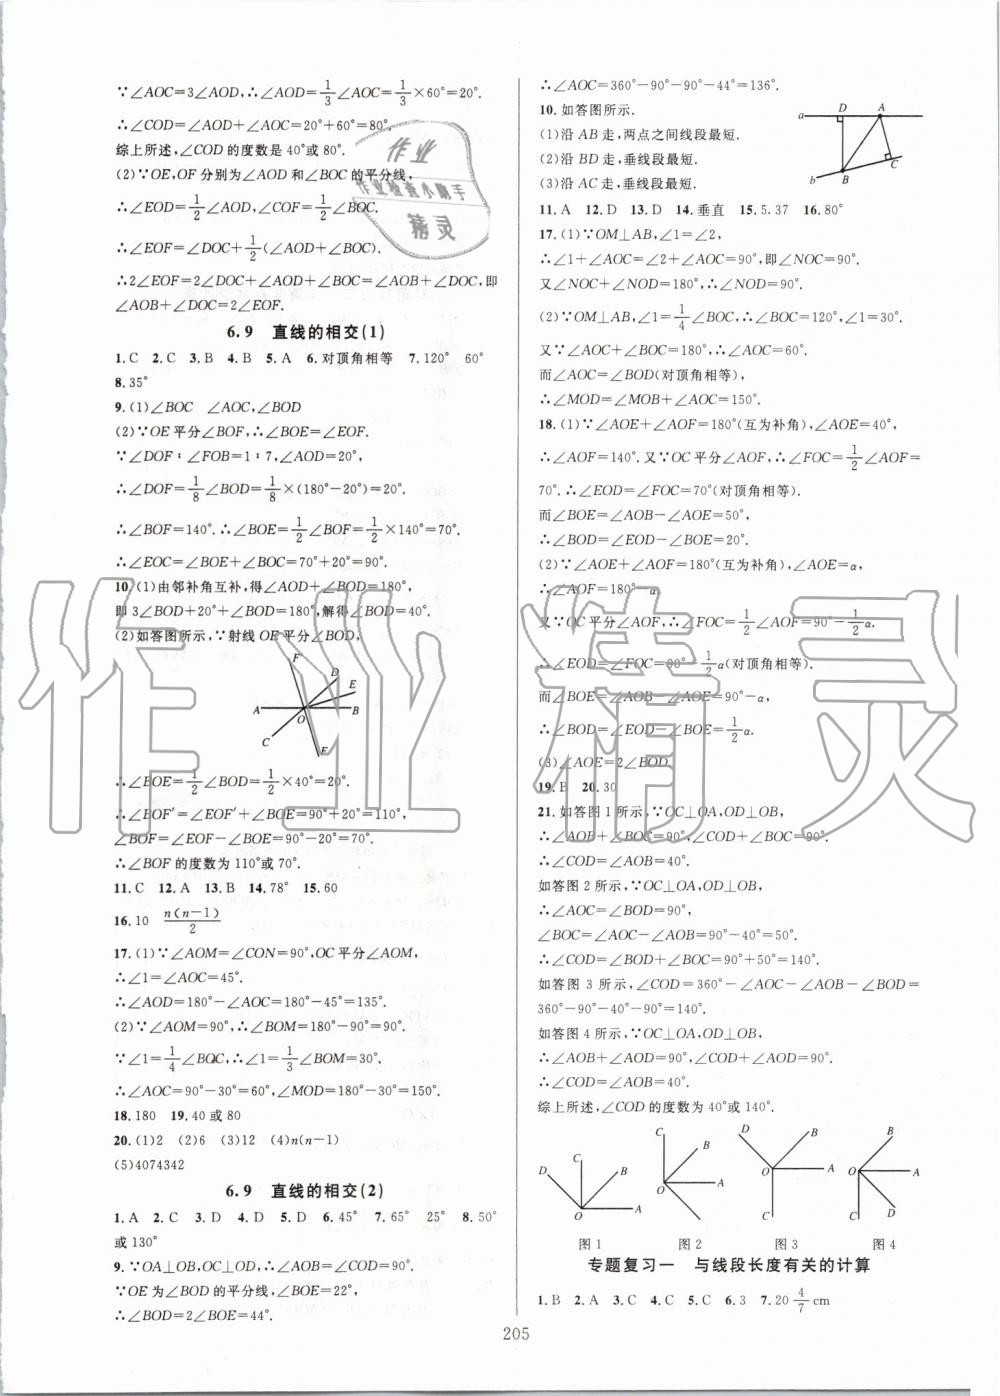 ∵∠AOC=3∠AOD,∴∠AOD=1/3∠AOC=1/3×60°=20°.
∴∠COD=∠AOD+∠AOC=20°+60°=80°.
综上所述,∠COD的度数是40°或80°.
(2)∵OE,OF分别为∠AOD和∠BOC的平分线,
∴∠EOD=1/2∠AOD,∠COF=1/2∠BOC.
∴∠EOF=∠DOC+1/2(∠AOD+∠BOC).
∴2∠EOF=2∠DOC+∠AOD+∠BOC=∠AOB+∠DOC,即
∠AOB+∠DOC=2∠EOF.
6.9 直线的相交(1)
1.C 2.C 3.B 4.B 5.A 6.对顶角相等 7.120° 60°
8.35°
9.(1)∠BOC ∠AOC,∠BOD
(2)∵OE平分∠BOF,∴∠BOE=∠EOF.
∵∠DOF∶∠FOB=1∶7,∠AOD=20°,
∴∠DOF=1/8∠BOD=1/8×(180°-20°)=20°.
∴∠BOF=140°.∴∠BOE=1/2∠BOF=1/2×140°=70°.
∴∠EOC=∠BOE+∠BOC=70°+20°=90°.
10.(1)由邻补角互补,得∠AOD+∠BOD=180°,
即3∠BOD+20°+∠BOD=180°,解得∠BOD=40°.
(2)如答图所示,∵射线OE平分∠BOD,
F
D
E
A
O
B
C
F
∴∠BOE=1/2∠BOD=1/2×40°=20°.
∴∠BOF'=∠EOF'+∠BOE=90°+20°=110°,
∠BOF=∠EOF-∠BOE=90°-20°=70°.
∴∠BOF的度数为110°或70°.
11.C 12.A 13.B 14.78° 15.60
16.10 n(n-1)/2
17.(1)∵∠AOM=∠CON=90°,OC平分∠AOM,
∴∠1=∠AOC=45°.
∴∠AOD=180°-∠AOC=180°-45°=135°.
(2)∵∠AOM=90°,∴∠BOM=180°-90°=90°.
∵∠1=1/4∠BOC,∴∠1=1/3∠BOM=30°.
∴∠AOC=90°-30°=60°,∠MOD=180°-30°=150°.
18.180 19.40或80
20.(1)2 (2)6 (3)12 (4)n(n-1)
(5)4074342
6.9 直线的相交(2)
1.A 2.C 3.D 4.D 5.D 6.45° 7.65° 25° 8.50°
或130°
9.∵OA⊥OB,OC⊥OD,∴∠AOB=∠COD=90°.
∵OE为∠BOD的平分线,∠BOE=22°,
∴∠BOD=2∠BOE=44°.
∴∠AOC=360°-90°-90°-44°=136°.
10.如答图所示.
(1)沿AB走,两点之间线段最短.
(2)沿BD走,垂线段最短.
(3)沿AC走,垂线段最短.
D
A
a
C
b
B
11.A 12.D 13.D 14.垂直 15.5.37 16.80°
17.(1)∵OM⊥AB,∠1=∠2,
∴∠1+∠AOC=∠2+∠AOC=90°,即∠NOC=90°.
又∠NOC+∠NOD=180°,∴∠NOD=90°.
(2)∵OM⊥AB,∠1=1/4∠BOC,∴∠BOC=120°,∠1=30°.
又∵∠AOC+∠BOC=180°,∴∠AOC=60°.
而∠AOC=∠BOD(对顶角相等),
∴∠MOD=∠MOB+∠AOC=150°.
18.(1)∵∠AOE+∠AOF=180°(互为补角),∠AOE=40°,
∴∠AOF=140°.又∵OC平分∠AOF,∴∠FOC=1/2∠AOF=
70°.∴∠EOD=∠FOC=70°(对顶角相等).
而∠BOE=∠AOB-∠AOE=50°,
∴∠BOD=∠EOD-∠BOE=20°.
(2)∵∠AOE+∠AOF=180°(互为补角),∠AOE=α,
∴∠AOF=180°-α.
又∵OC平分∠AOF,∴∠FOC=1/2∠AOF=90°-1/2α.
∴∠EOD=∠FOC=90°-1/2α(对顶角相等).
而∠BOE=∠AOB-∠AOE=90°-α,
∴∠BOD=∠EOD-∠BOE=1/2α.
(3)∠AOE=2∠BOD.
19.B 20.30
21.如答图1所示,∵OC⊥OA,OD⊥OB,
∴∠AOB+∠BOC=90°,∠COD+∠BOC=90°.
∴∠COD=∠AOB=40°.
如答图2所示,∵OC⊥OA,OD⊥OB,
∴∠AOC=∠BOD=90°,
∠BOC=∠AOC-∠AOB=90°-40°=50°.
∴∠COD=∠BOD+∠BOC=90°+50°=140°.
如答图3所示,∠COD=360°-∠AOC-∠AOB-∠BOD=
360°-90°-40°-90°=140°.
如答图4所示,∵OC⊥OA,OD⊥OB,
∴∠AOB+∠AOD=90°,∠COD+∠AOD=90°.
∴∠COD=∠AOB=40°.
综上所述,∠COD的度数为40°或140°.
D
C
B
O
A
图1
C
B
O
A
图2
D
B
O
A
C
图3
B
O
A
D
C
图4
专题复习一 与线段长度有关的计算
1.B 2.A 3.C 4.C 5.C 6.3 7.20 4/7 cm
205
作业
作业检查小助手
精灵
作业精灵